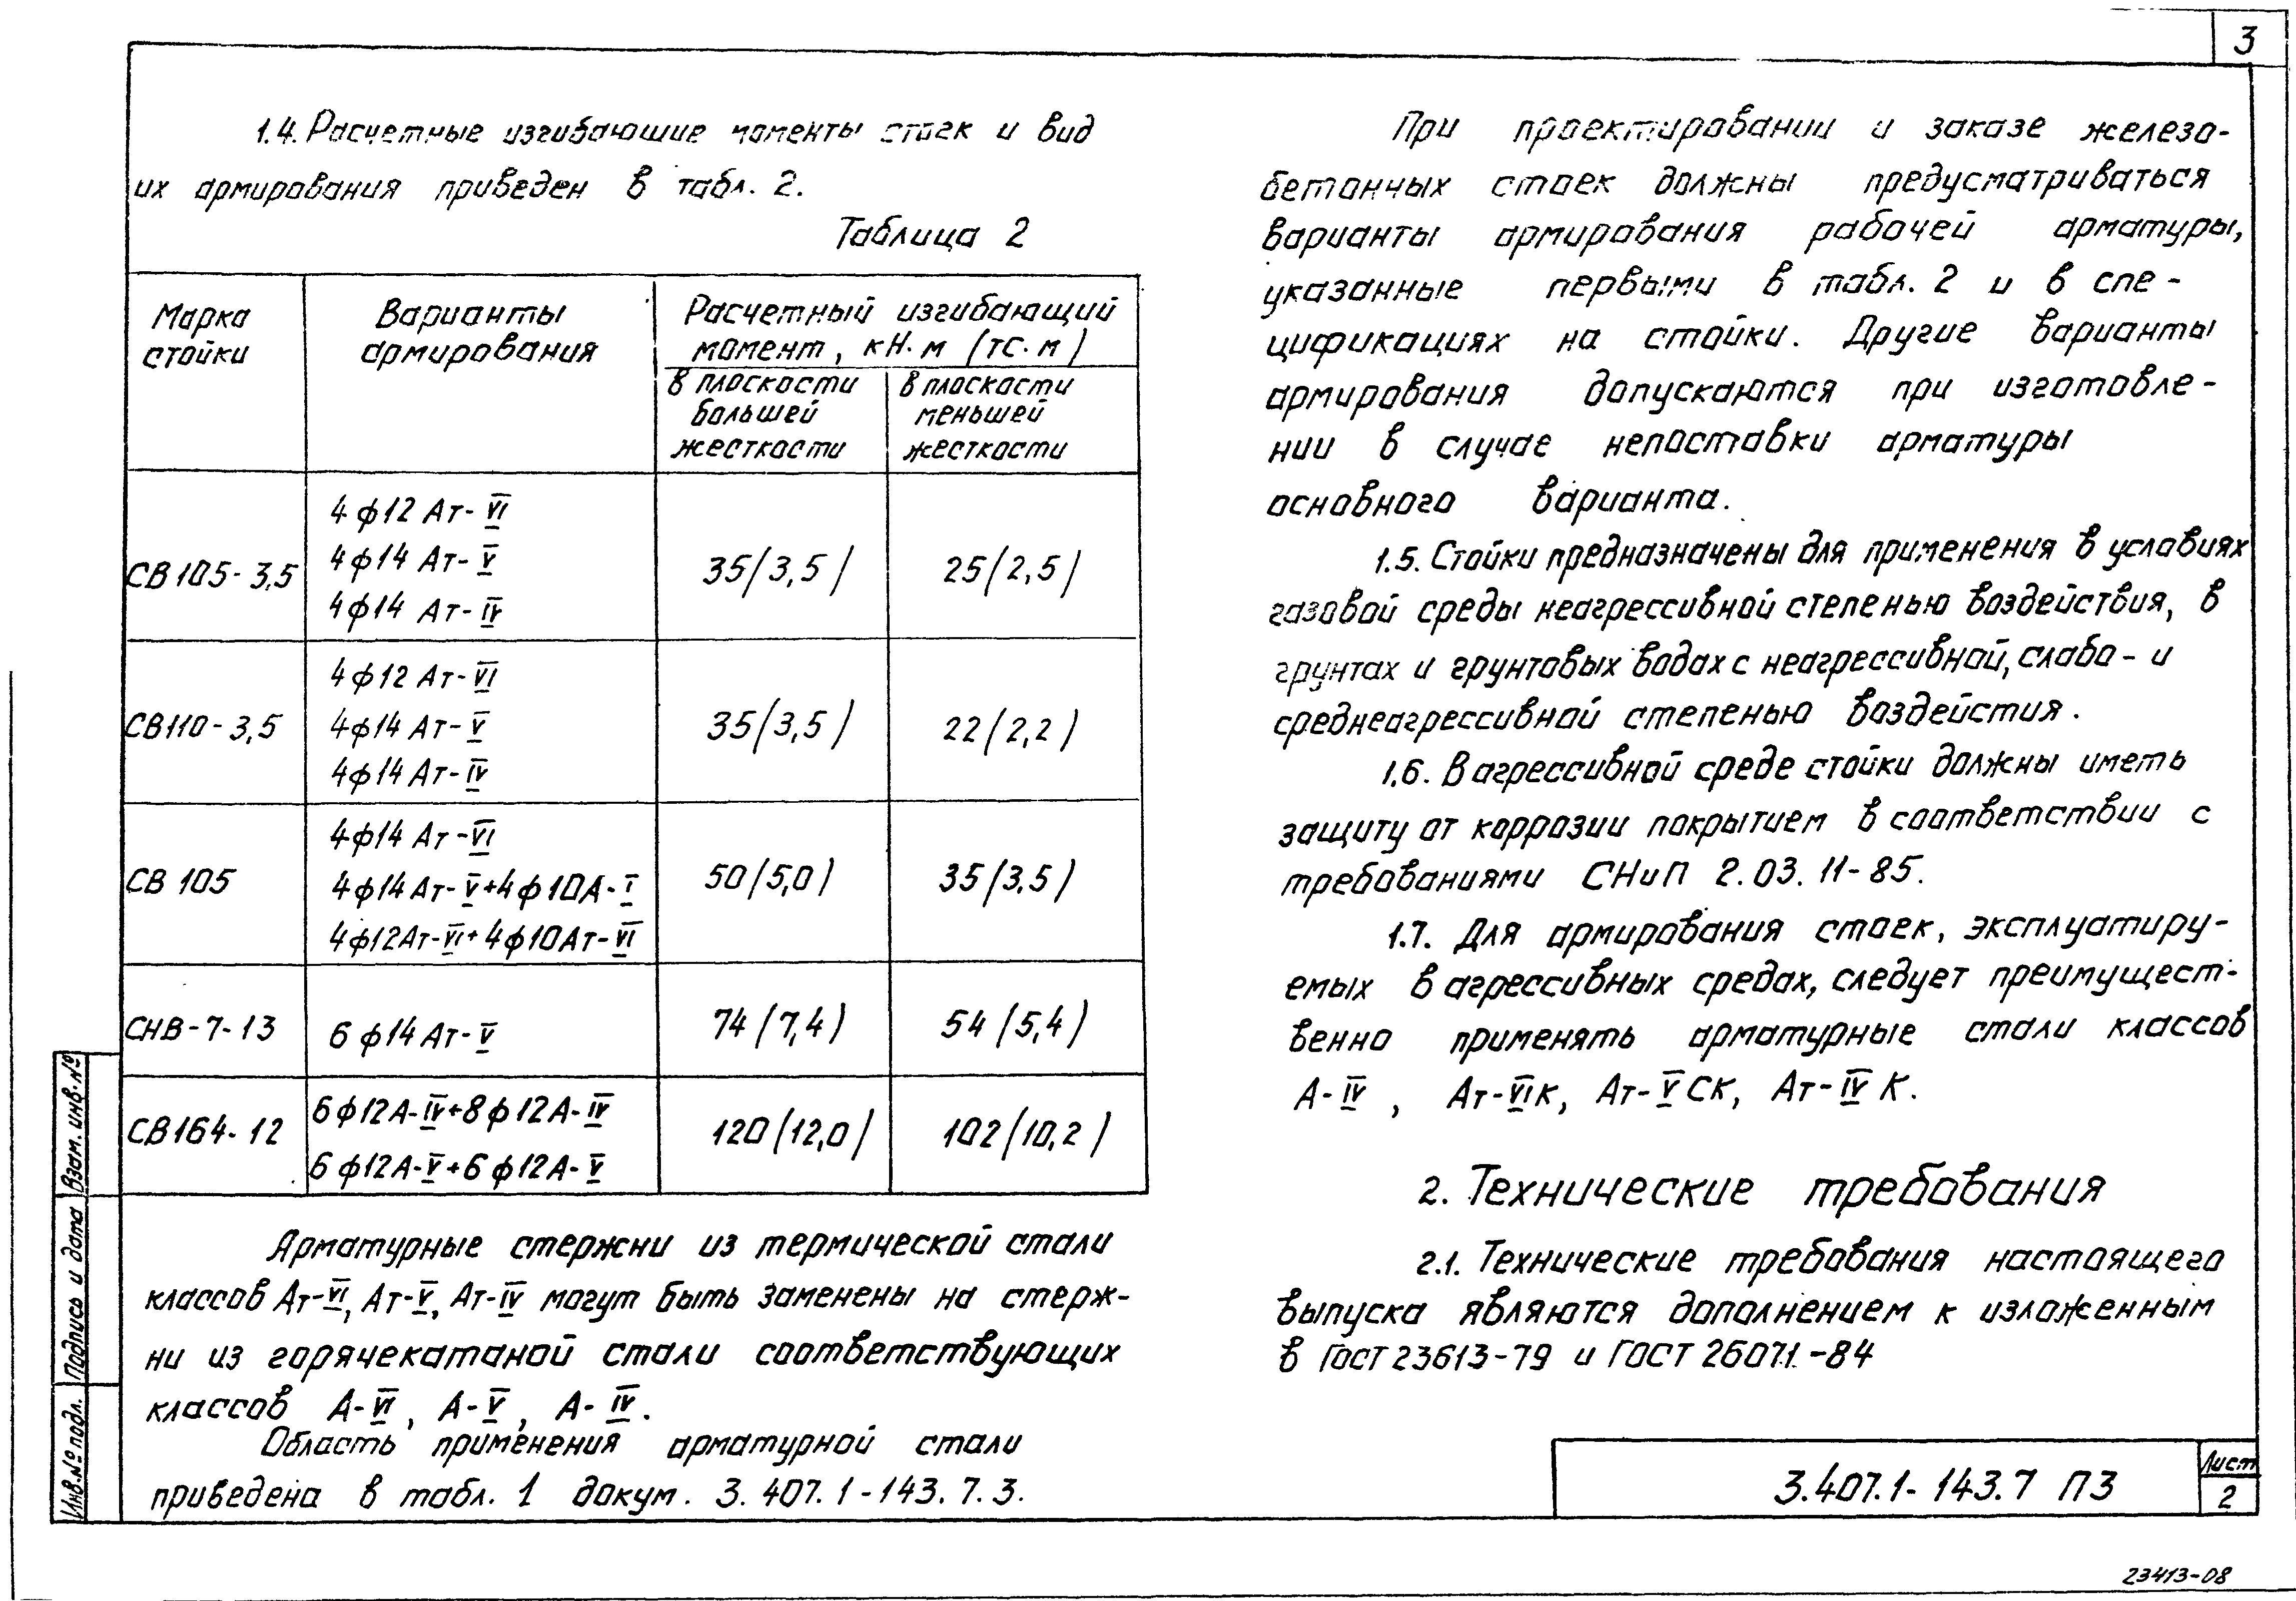 3
1.4. Расчетные изгибающие моменты стоек и вид
их армирования приведен в табл. 2.
Таблица 2
Марка
стойки
Варианты
армирования
Расчетный изгибающий
момент, кН·м (тс·м)
в плоскости
большей
жесткости
в плоскости
меньшей
жесткости
СВ 105-3,5
4ф12 Ат-VI
4ф14 Ат-V
4ф14 Ат-IV
35(3,5)
25(2,5)
СВ110-3,5
4ф12 Ат-VI
4ф14 Ат-V
4ф14 Ат-IV
35(3,5)
22(2,2)
СВ 105
4ф14 Ат-VI
4ф14Ат-V+4ф10А-I
4ф12Ат-VI+4ф10Ат-VI
50(5,0)
35(3,5)
СНВ-7-13
6ф14 Ат-V
74(7,4)
54(5,4)
СВ164-12
6ф12А-IV+8ф12А-IV
6ф12А-V+6ф12А-V
120(12,0)
102(10,2)
Арматурные стержни из термической стали
классов Ат-VI, Ат-V, Ат-IV могут быть заменены на стерж-
ни из горячекатаной стали соответствующих
классов А-VI, А-V, А-IV.
Область применения арматурной стали
приведена в табл. 1 докум. 3.407.1-143.7.3.
При проектировании и заказе железо-
бетонных стоек должны предусматриваться
варианты армирования рабочей арматуры,
указанные первыми в табл. 2 и в спе-
цификациях на стойки. Другие варианты
армирования допускаются при изготовле-
нии в случае непоставки арматуры
основного варианта.
1.5. Стойки предназначены для применения в условиях
газовой среды неагрессивной степенью воздействия, в
грунтах и грунтовых водах с неагрессивной, слабо- и
среднеагрессивной степенью воздейстия.
1.6. В агрессивной среде стойки должны иметь
защиту от коррозии покрытием в соответствии с
требованиями СНиП 2.03.11-85.
1.7. Для армирования стоек, эксплуатиру-
емых в агрессивных средах, следует преимущест-
венно применять арматурные стали классов
А-IV, Ат-VIК, Ат-VСК, Ат-IVК.
2. Технические требования
2.1. Технические требования настоящего
выпуска являются дополнением к изложенным
в ГОСТ 23613-79 и ГОСТ 26071.-84
Инв.№ подл.
Подпись и дата
Взам. инв.№
3.407.1-143.7 ПЗ
Лист
2
23413-08